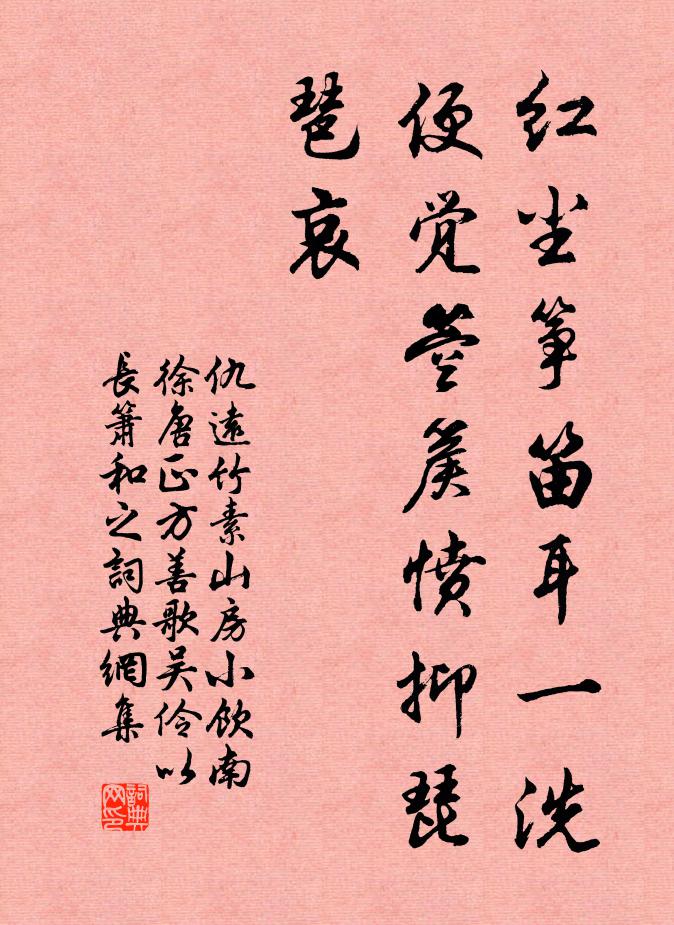 红尘筝笛耳一洗
便觉箜篌愤抑琵
琶哀
仇遠竹素山房小飲南
徐唐正方善歌吴伶以
長簫和之詞典網集
詞典网印